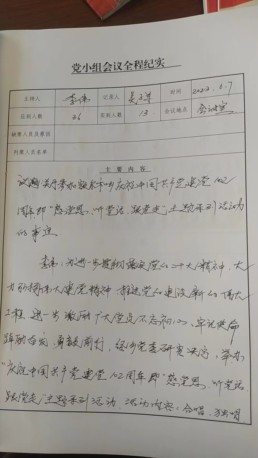 党小组会议全程纪实
主持人 李伟 记录人 时间 2023.6.7
应到人数 26 实到人数 13 会议地点 会议室
缺席人员及原因
列席人员名单
主要内容
议题：关于 庆祝中国共产党建党102
周年暨“感党恩、听党话、跟党走”主题系列活动
的事项
李伟：为进一步 党的二十大精神，大
力弘扬伟大建党精神 推进党的建设新的伟大
工程，进一步激励广大党员不忘初心、牢记使命
勇毅前行，经 党委研究决定，举办
“庆祝中国共产党建党102周年暨“感党恩、听党话
跟党走”主题系列活动 活动内容：合唱、